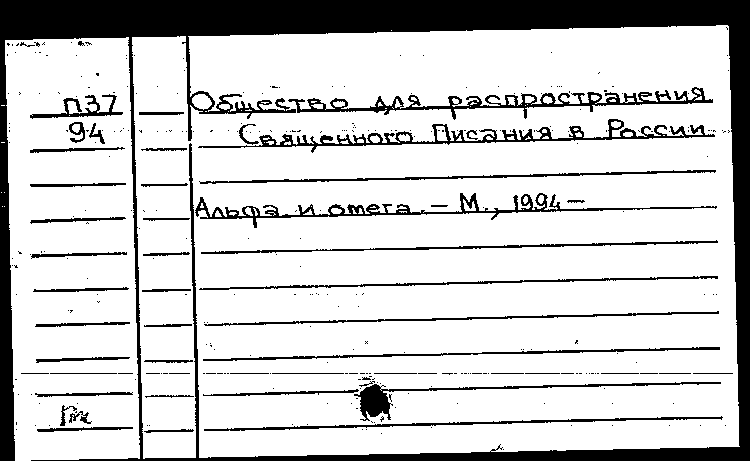 П37
94
Общество для распространения
Священного Писания в России
Альфа и омега. – М., 1994 –